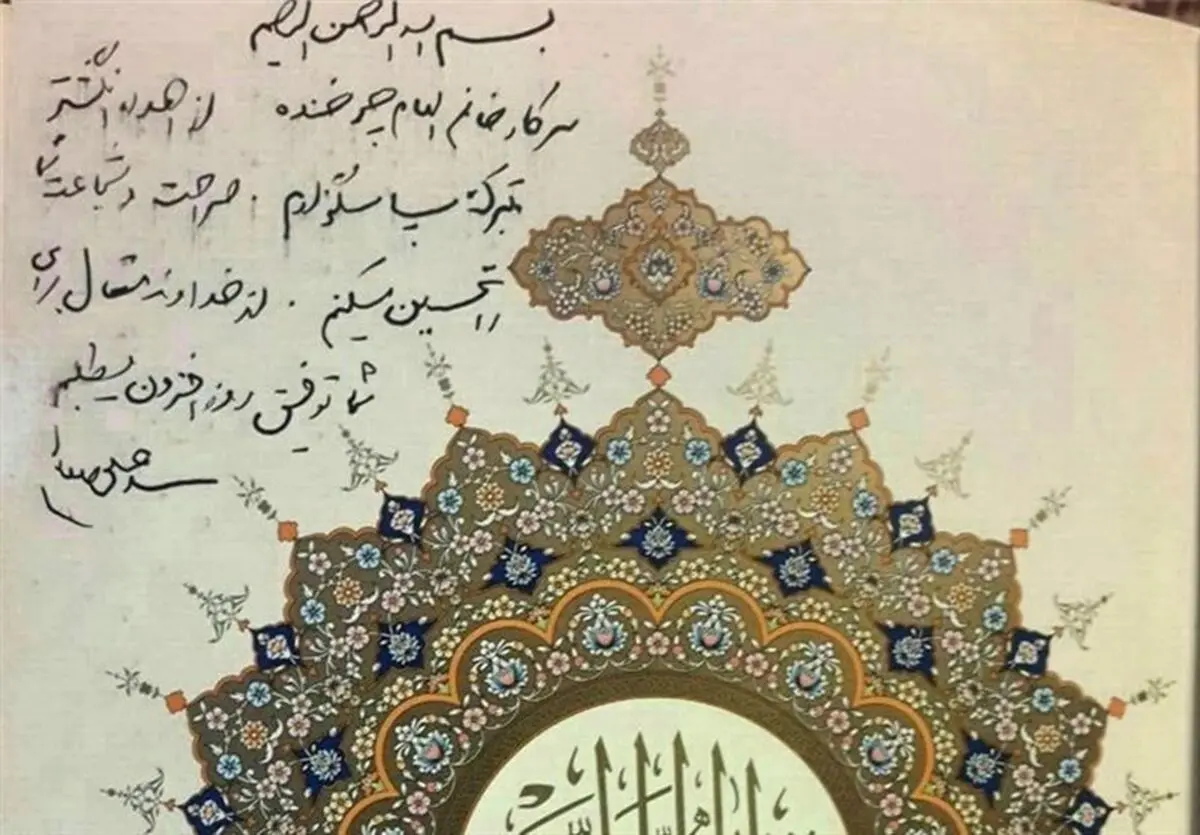 بسم الله الرحمن الرحیم
سرکار خانم الهام چرخنده از اهداء انگشتر
تبرک سپاسگزارم . صراحت و شجاعت شما
را تحسین میکنم . از خداوند متعال برای
شما توفیق روز افزون میطلبم
سید علی